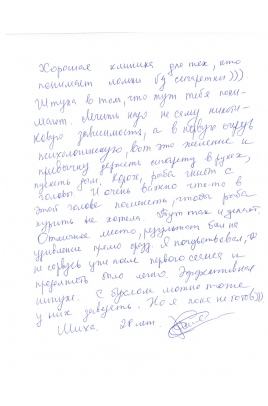 Хорошая клиника для тех, кто
понимает ломки без сигареты)))
Штука в том, что тут тебя пони-
мают. Лечить надо не саму никоти-
новую зависимость, а в первую очередь
психологическую, вот это желание и
привычку держать сигарету в руках,
пускать дым. Короче, рыба гниет с
головы. И очень важно что-то в
этой голове поменять, чтобы рыба
курить не хотела. Тут так и делают.
Отличное место, результат был на
удивление прямо сразу. Я почувствовал, что
не сорвусь уже после первого сеанса и
продолжать было легко. Эффективная
штука. С бухлом можно тоже
у них завязать. Но я пока не готов)))
Миха. 28 лет.